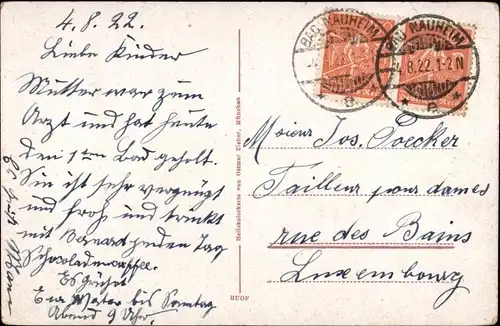 4.8.22.
Liebe Kinder
Mutter war zum
Arzt und hat heute
den 1ten Bad geholt.
Sie ist sehr vergnügt
und froh und trinkt
mit Bernard jeden Tag
Schocoladenkaffee.
Es Grüßt
Eur Vater bis Sonntag
Abend 9 Uhr.
BAD NAUHEIM
BAD NAUHEIM
4.8.22.1-2N
Heliokolorkarte von Ottmar Zieher, München
HUOF
Monsieur Jos. Poecker
Tailleur pour dames
rue des Bains
Luxembourg